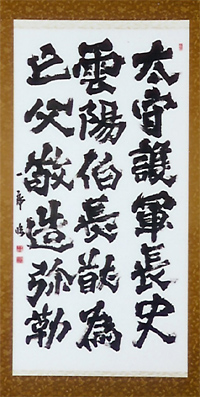 太守護軍長史
雲陽伯長猷為
亡父敬造弥勒